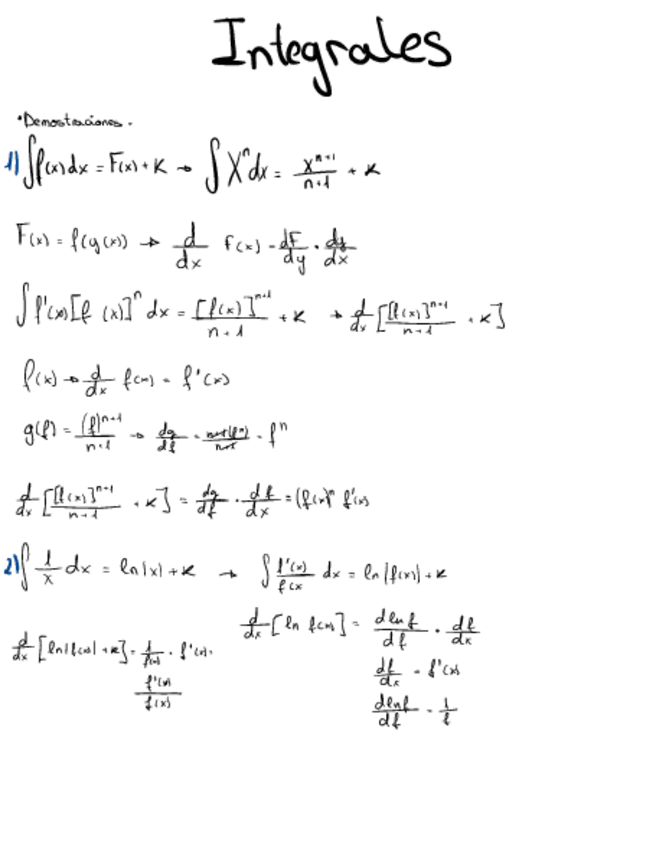 Integrales
•Demostraciones.
1) ∫f(x)dx = F(x)+K → ∫X^n dx = x^(n+1)/(n+1) + K
F(x) = f(y(x)) → d/dx f(x) = dF/dy · dy/dx
∫f'(x)[f(x)]^n dx = [f(x)]^(n+1)/(n+1) + K → d/dx [[f(x)]^(n+1)/(n+1) + K]
f(x) → d/dx f(x) = f'(x)
g(f) = (f)^(n+1)/(n+1) → dg/df = n+1(f^n)/n+1 = f^n
d/dx [[f(x)]^(n+1)/(n+1) + K] = dg/df · df/dx = (f(x))^n f'(x)
2) ∫ 1/x dx = ln|x| + K → ∫ f'(x)/f(x dx = ln|f(x)| + K
d/dx [ln f(x)] = dlnf/df · df/dx
d/dx [ln|f(x)| + K] = 1/f(x) · f'(x) =
f'(x)/f(x)
df/dx = f'(x)
dlnf/df = 1/f